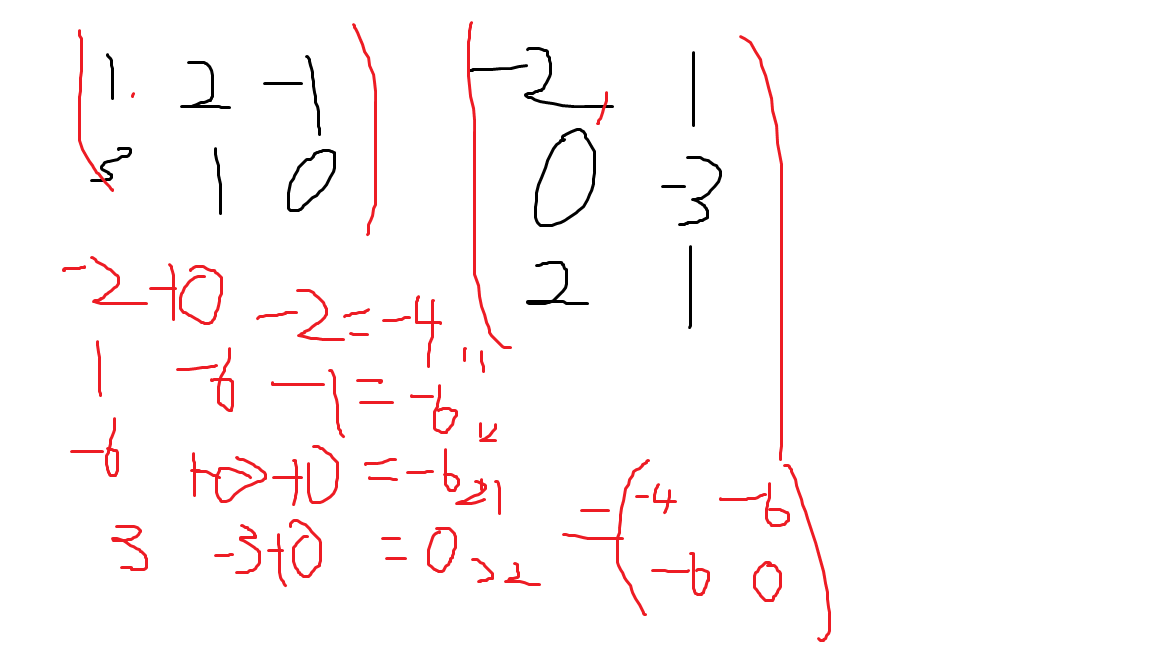 1. 2 -1 -2 1
5 1 0 0 -3
2 1
-2+0 -2=-4 11
1 -6 -1=-6 12
-6 +0+0 =-6 21
3 -3+0 =0 22
=(-4 -6
-6 0)